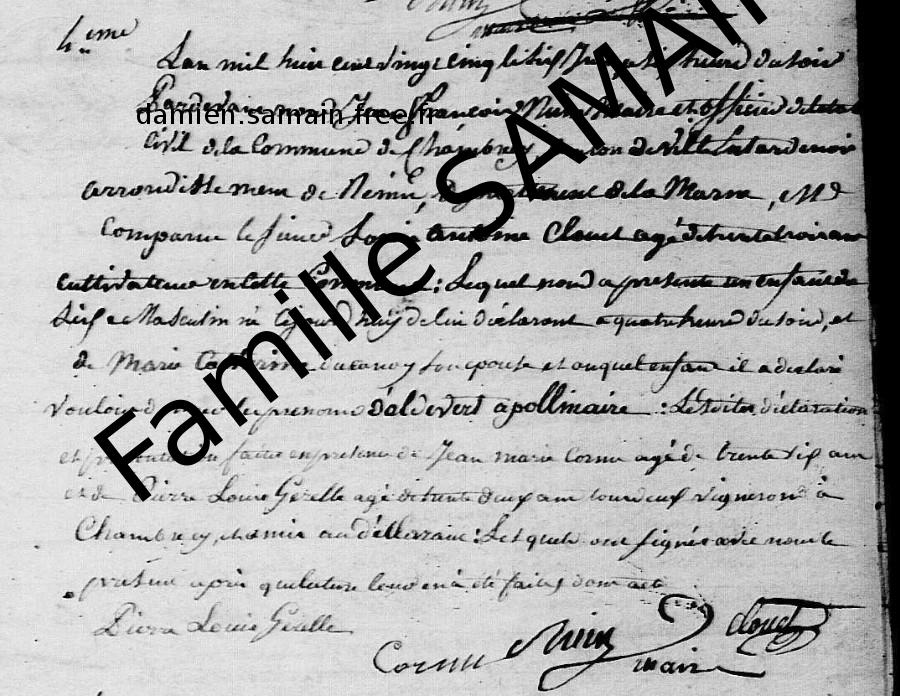 4eme
Lan mil huit cent vingt cinq le six à six heure du soir
Pardevant nous Jean François maire et officier de letat
damien.samain.free.fr
Civil de la Commune de Chambrecy de Ville entardenoir
arrondissement de Reims, département de la Marne, est
Comparu le sieur Louis antoine Clouet agé de trente trois ans
cultivateur en cette Commune : Lequel nous a presente un enfant du
Sexe Masculin né ce jour d'huy de lui déclarant a quatre heure du soir, et
de Marie Catherine son epouse et auquel enfant il a declaré
vouloir donner les prenoms d'aldevert apollinaire : Lesdites déclaration
et présentation faite en presence de Jean marie Cornu agé de trente six ans
et de Pierre Louis Gérelle agé de trente deux ans tous deux vignerons à
Chambrecy, témoins : Lesquels ont signés avec nous le
présent après que lecture leur en à été faites dont acte
Pierre Louis Gérelle
Cornu
maire
Clouet
Famille SAMAIN